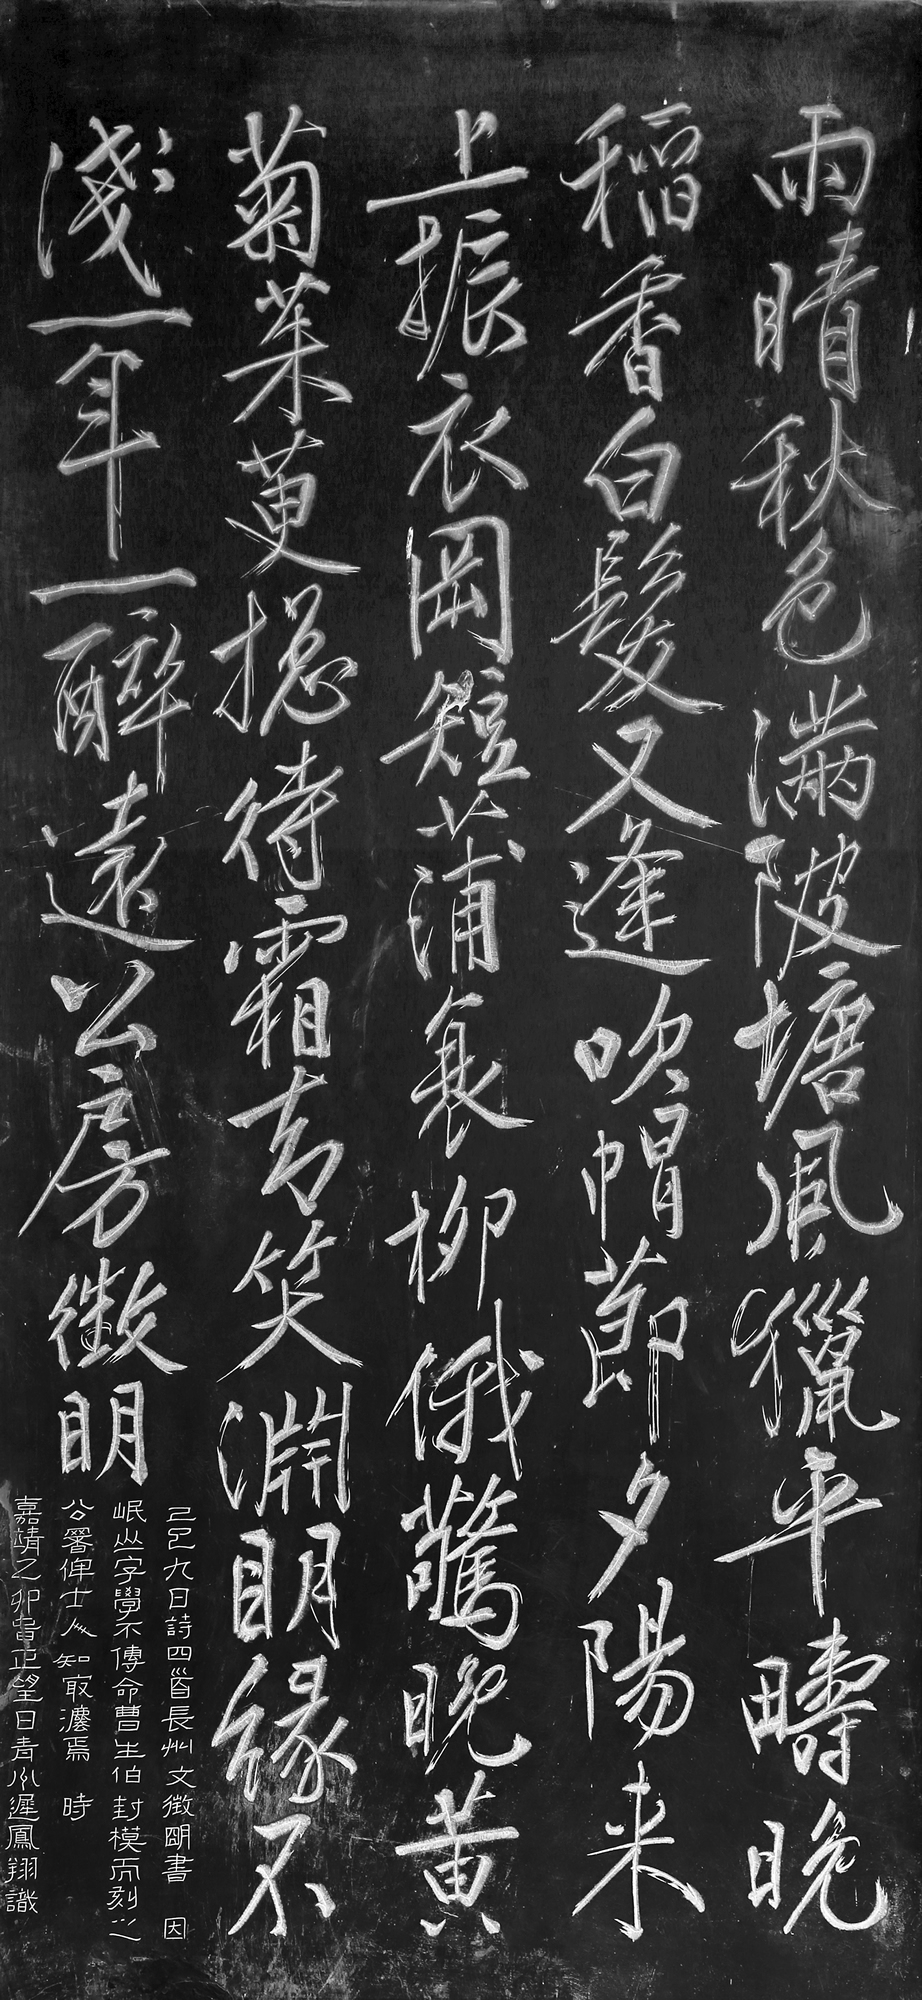 雨晴秋色滿陂塘風獵平疇晚
稻香白髮又逢吹帽節夕陽来
上振衣岡短蒲衰柳俄驚晚黄
菊茱萸總待霜却笑淵明緣不
淺一年一醉遠公房徵明
己巳九日詩四首長州文徵明書 因
岷山字學不傳命曹生伯封模而刻之
公署俾士人知取灋焉 時
嘉靖乙卯皆正望日青州遲鳳翔識